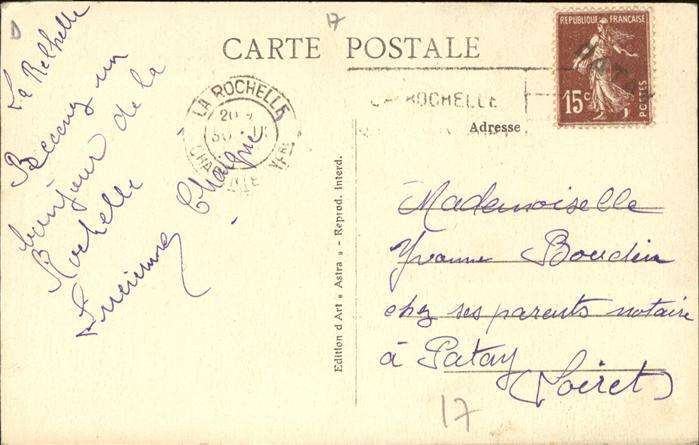 D
17
CARTE POSTALE
REPUBLIQUE FRANÇAISE
15c
POSTES
LA ROCHELLE
20
LA ROCHELLE
Adresse
La Rochelle
Recevez un
bonjour de la
Rochelle
Lucienne Chaigne
Edition d'Art « Astra » - Reprod. Interd.
Mademoiselle
Yvonne Boudin
chez ses parents notaire
à Patay
(Loiret)
17